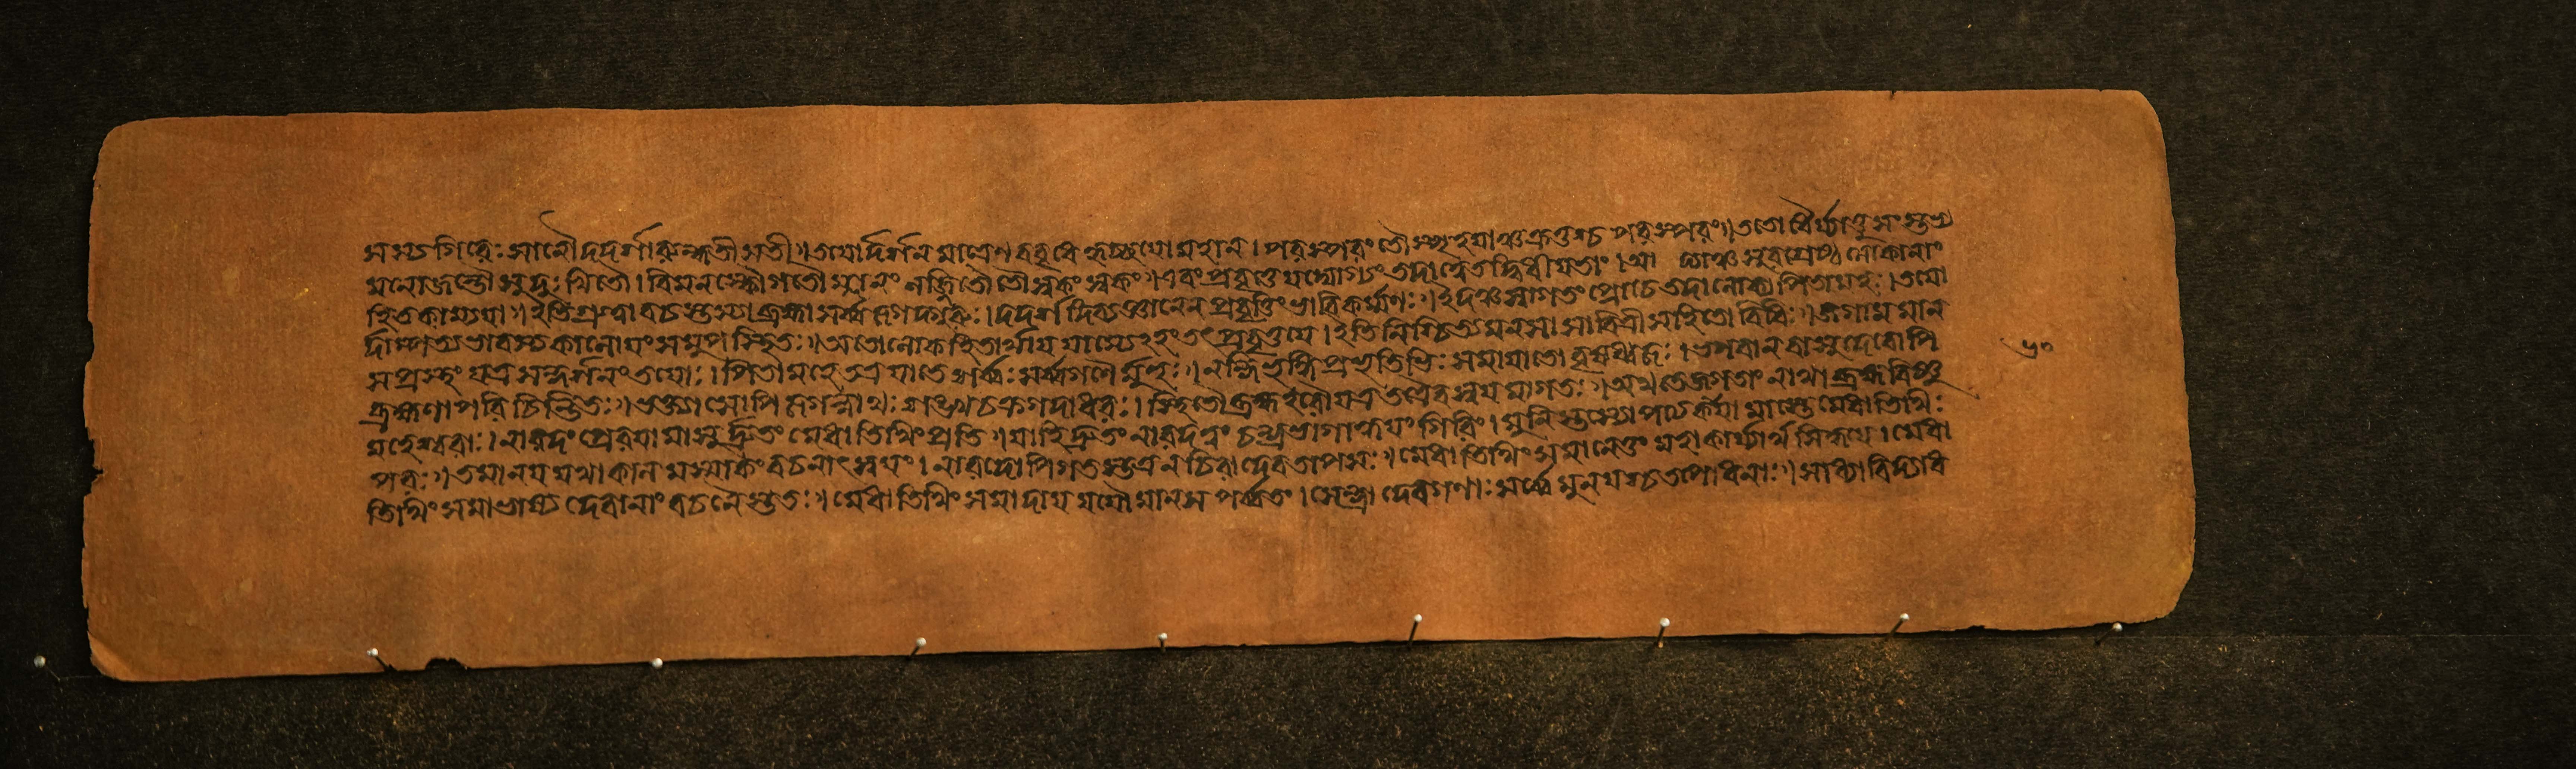 মস্যগিরেঃ সানৌ দদর্শারুন্ধতীসতী॥ তযোর্দর্শন মাত্রেণ ববৃধে হৃচ্ছযো মহান। পরস্পরং তৌ স্পৃহযাঞ্চক্রতুশ্চ পরস্পরং॥ ততো ধৈর্য্যাত্তু সংস্তভ্য
মনোজন্তৌ সুদুঃখিতৌ। বিমনস্কৌ গতৌ স্থানং লজ্জিতৌ তৌ স্বকং স্বকং॥ এবং প্রবৃত্তে যদ্যোগ্যং তদান্বেতদ্বিধীযতাং। আ সুরশ্রেষ্ঠ লোকানাং
হিতকাম্যযা॥ ইতিশ্রুত্বা বচস্তস্যা ব্রহ্মা সর্ব্বজগদ্গুরুঃ। দদর্শ দিব্যজ্ঞানেন প্রবৃত্তিং ভাবিকর্ম্মণঃ॥ ইদঞ্চ স্বাগতং প্রোচে তদা লোকপিতামহঃ। তযো
র্দাম্পত্যভাবস্য কালোযং সমুপস্থিতঃ॥ অতোলোকহিতার্থায যাস্যেঽহং তৎপ্রবৃত্তযে। ইতি নিশ্চিত্য মনসা সাবিত্রীসহিতো বিধিঃ॥ জগাম মান
সপ্রস্থং যত্র সন্দর্শনং তযোঃ। পিতামহে তত্র যাতে শর্ব্বঃ সর্ব্বগণৈর্যুতঃ॥ নন্দিভৃঙ্গিপ্রভৃতিভিঃ সমাযাতো বৃষধ্বজঃ। ভগবান বাসুদেবোপি
ব্রহ্মণা পরিচিন্তিতঃ॥ ভক্ত্যা সোপি জগন্নাথঃ শঙ্খচক্রগদাধরঃ। স্থিতৌ ব্রহ্মহরৌ যত্র তত্রৈব স্বযমাগতঃ॥ অথ তে জগতাং নাথা ব্রহ্মবিষ্ণু
মহেশ্বরাঃ। নারদং প্রেরযামাসুর্দ্রুতং মেধাতিথিং প্রতি॥ যাহি দ্রুতং নারদ ত্বং চন্দ্রভাগাহ্বযং গিরিং। মুনিস্তস্যোপত্যকাযা মাস্তে মেধাতিথিঃ
পরঃ॥ তমানয যথাকাল মস্মাকং বচনাৎ স্বযং। নারদোপি গতস্তত্র নচিরাদ্দেবতাপসঃ॥ মেধাতিথিং সমানেতুং মহাকার্য্যার্থসিদ্ধযে। মেধা
তিথিং সমাভাষ্য দেবানাং বচনৈস্ততঃ॥ মেধাতিথিং সমাদায যযৌ মানসপর্ব্বতং। সেন্দ্রা দেবগণাঃ সর্ব্বে মুনযশ্চ তপোধনাঃ॥ সাধ্যা বিদ্যাধ
৮০